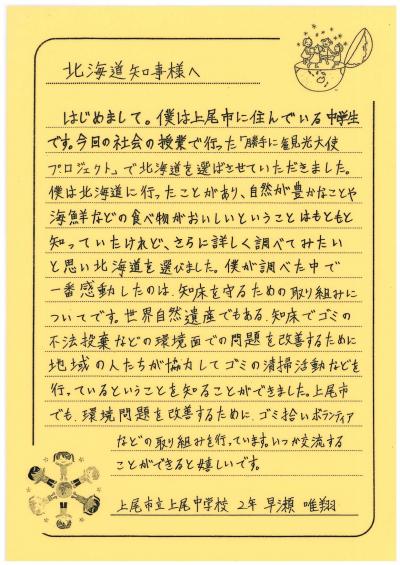 北海道知事様へ
はじめまして。僕は上尾市に住んでいる中学生
です。今回の社会の授業で行った「勝手に観光大使
プロジェクト」で北海道を選ばさせていただきました。
僕は北海道に行ったことがあり、自然が豊かなことや
海鮮などの食べ物がおいしいということはもともと
知っていたけれど、さらに詳しく調べてみたい
と思い北海道を選びました。僕が調べた中で
一番感動したのは、知床を守るための取り組みに
ついてです。世界自然遺産でもある、知床でゴミの
不法投棄などの環境面での問題を改善するために
地域の人たちが協力してゴミの清掃活動などを
行っているということを知ることができました。上尾市
でも、環境問題を改善するために、ゴミ拾いボランティア
などの取り組みを行っています。いつか交流する
ことができると嬉しいです。
上尾市立上尾中学校 2年 早瀬 唯翔